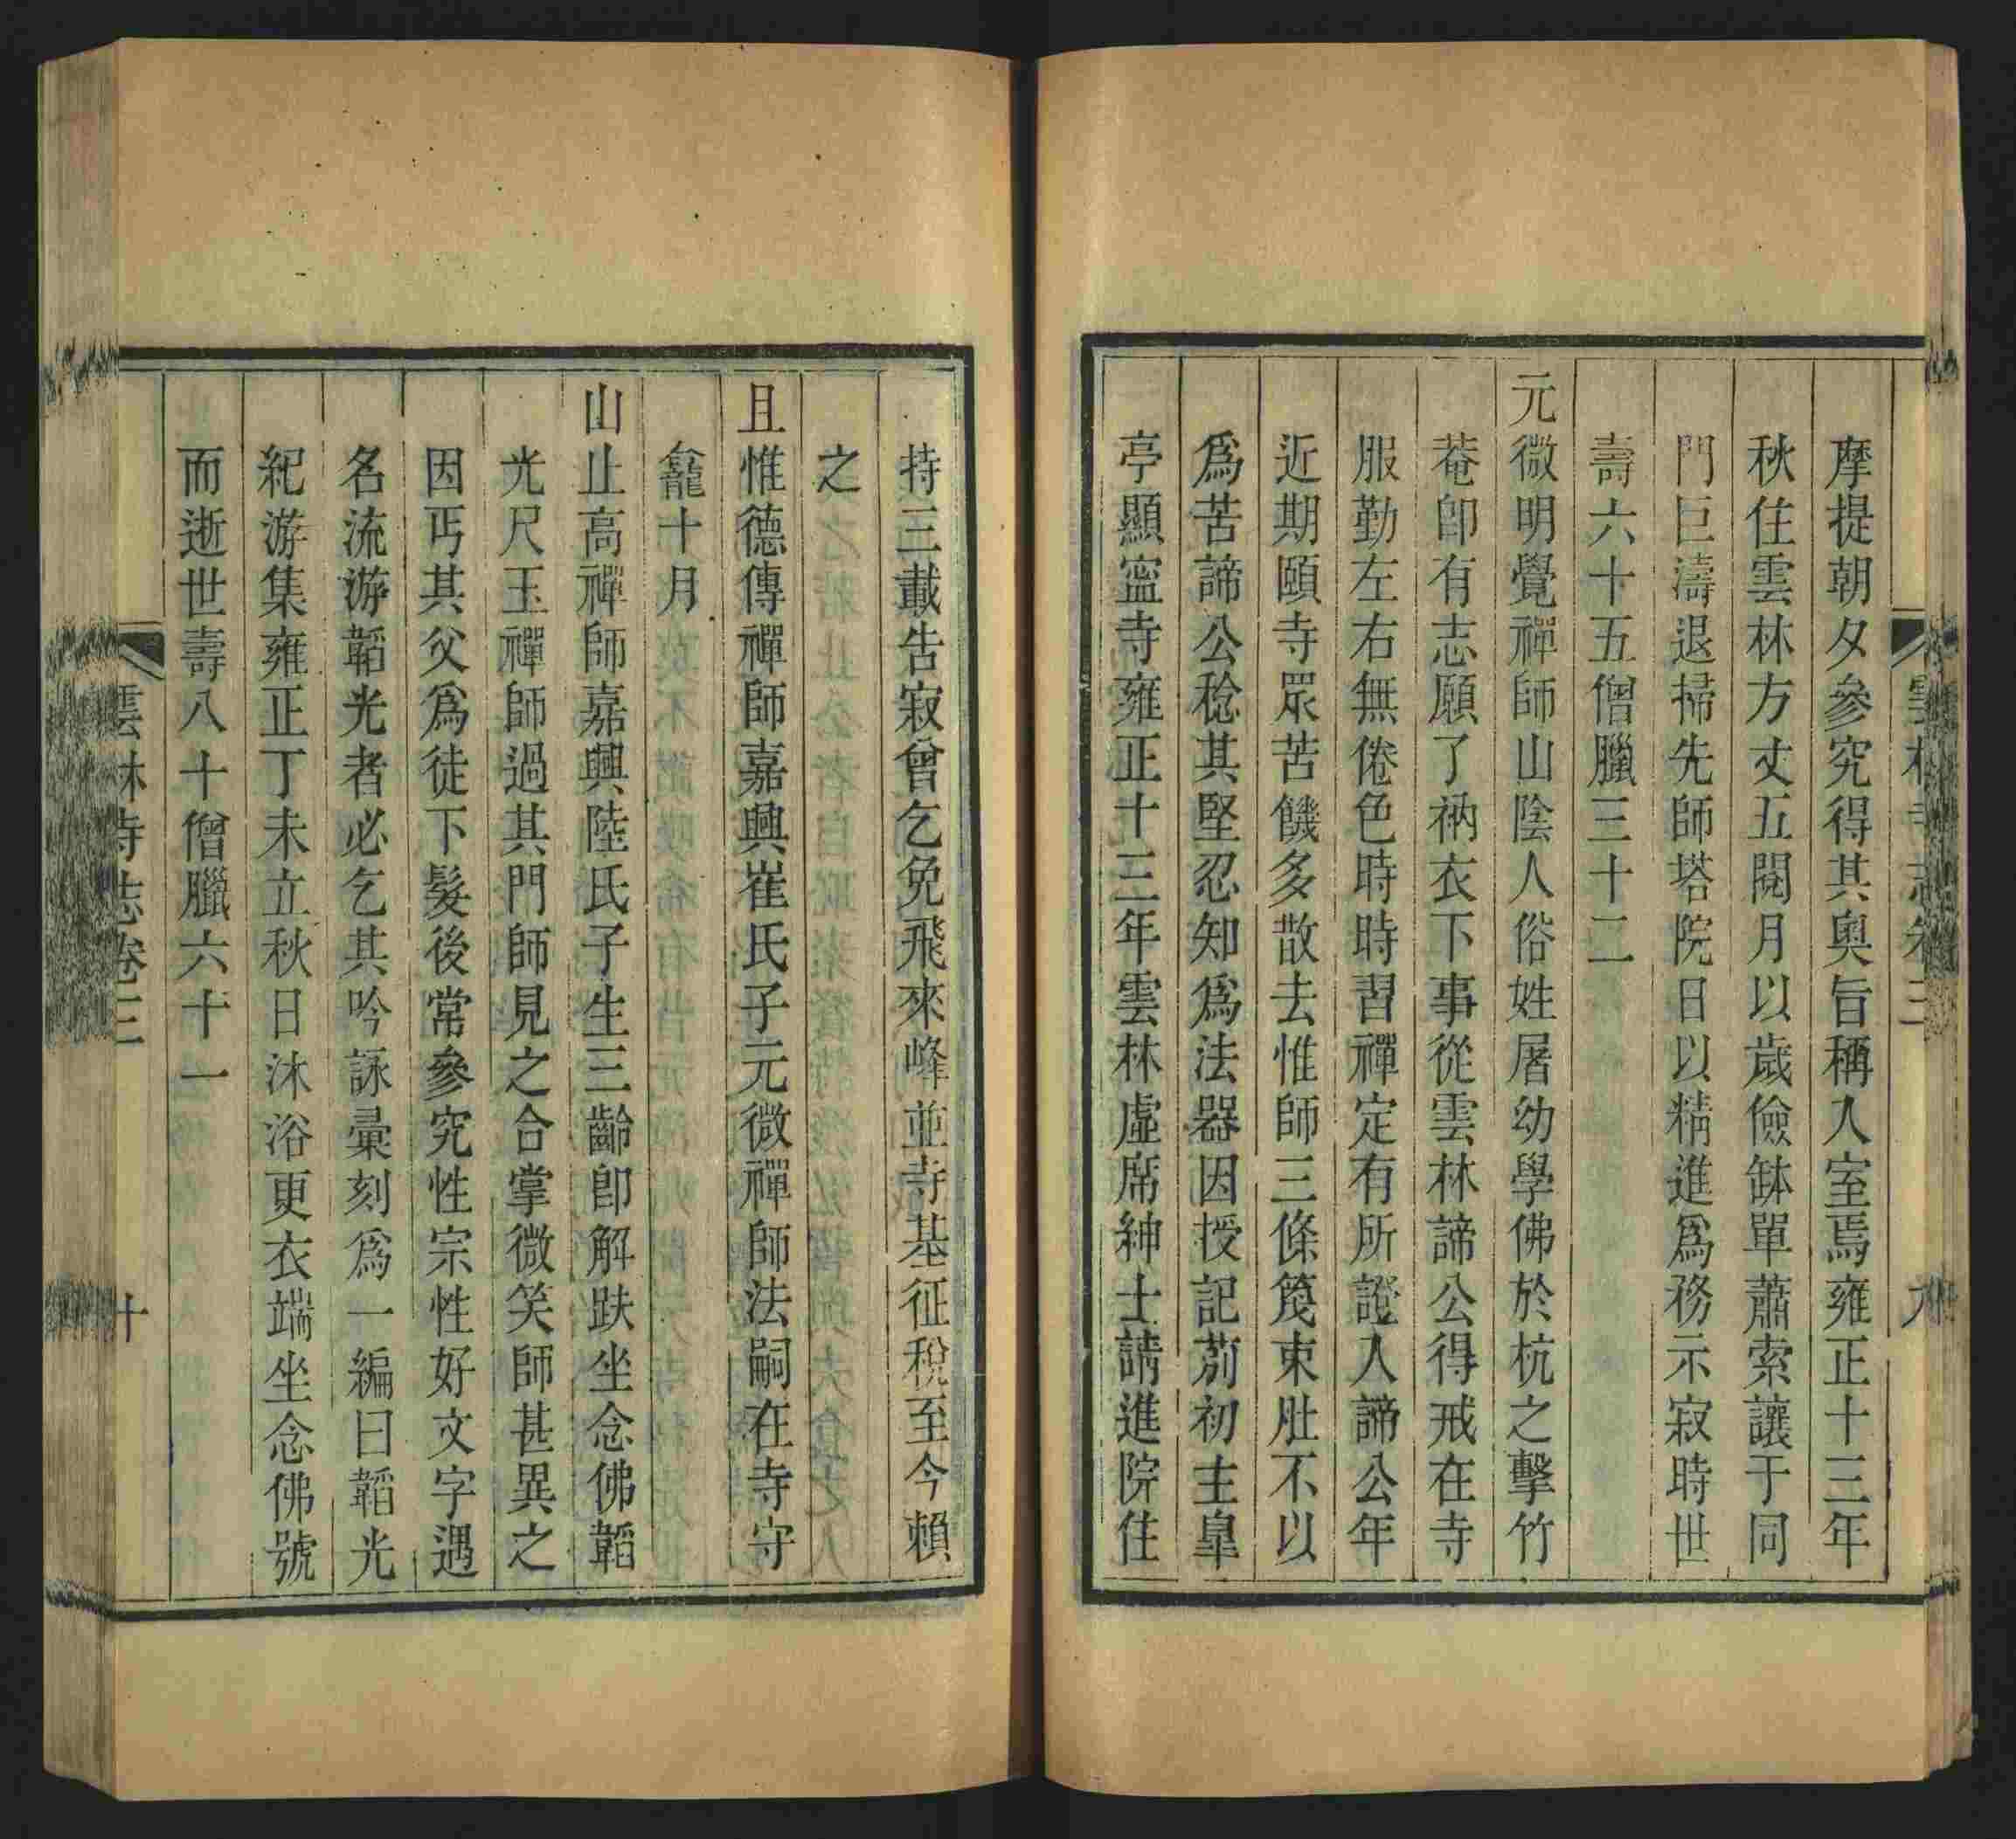 雲林寺志卷三 九
摩提朝夕參究得其奧旨稱入室焉雍正十三年
秋住雲林方丈五閱月以歲儉缽單蕭索讓于同
門巨濤退掃先師塔院日以精進爲務示寂時世
壽六十五僧臘三十二
元微明覺禪師山陰人俗姓屠幼學佛於杭之擊竹
菴卽有志願了衲衣下事從雲林諦公得戒在寺
服勤左右無倦色時時習禪定有所證入諦公年
近期頤寺眾苦饑多散去惟師三條篾束肚不以
爲苦諦公稔其堅忍知爲法器因授記莂初主臯
亭顯寍寺雍正十三年雲林虛席紳士請進院住
持三載告寂曾乞免飛來峰並寺基征稅至今賴
之
且惟德傳禪師嘉興崔氏子元微禪師法嗣在寺守
龕十月
山止高禪師嘉興陸氏子生三齡卽解趺坐念佛韜
光尺玉禪師過其門師見之合掌微笑師甚異之
因丐其父爲徒下髮後常參究性宗性好文字遇
名流游韜光者必乞其吟詠彙刻爲一編曰韜光
紀游集雍正丁未立秋日沐浴更衣端坐念佛號
而逝世壽八十僧臘六十一
雲林寺志卷三 十